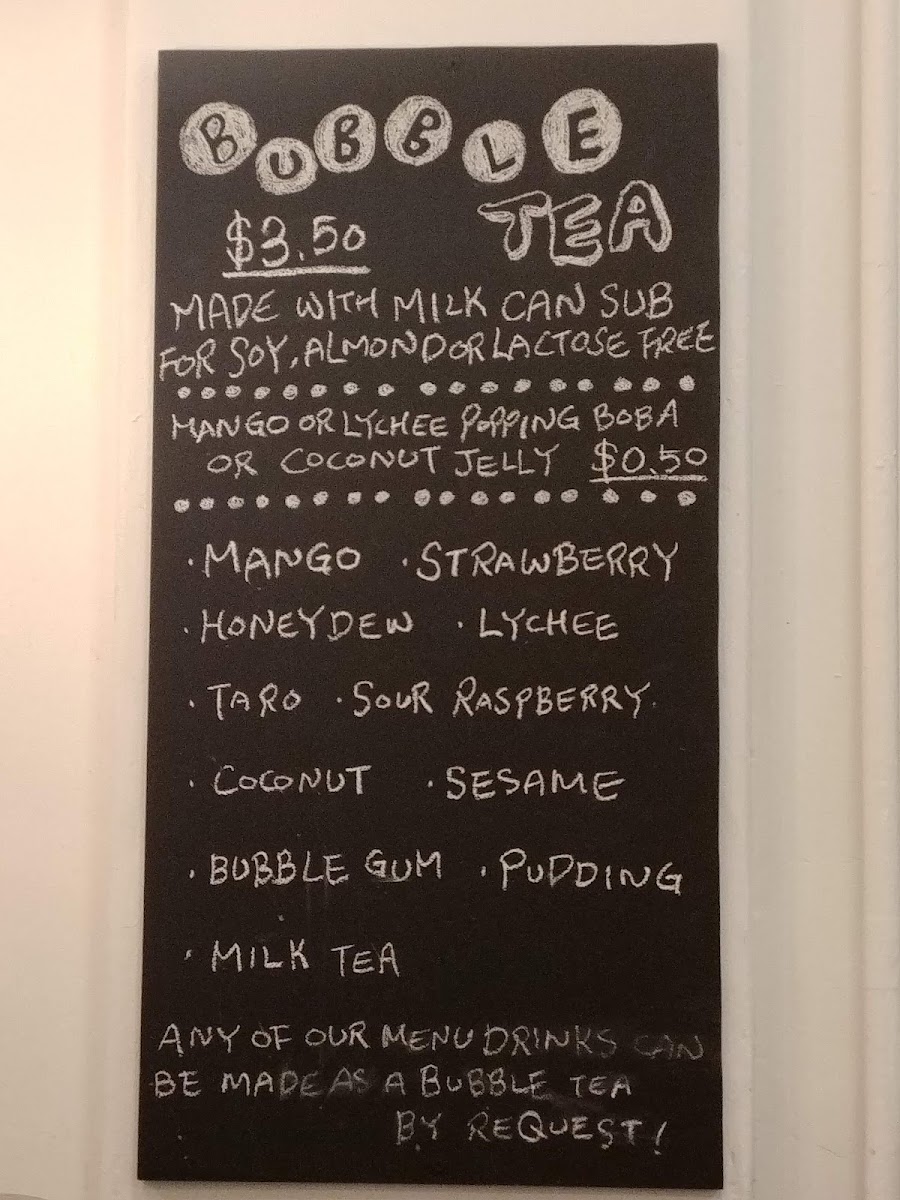 BUBBLE
TEA
$3.50
MADE WITH MILK CAN SUB
FOR SOY, ALMOND OR LACTOSE FREE
MANGO OR LYCHEE POPPING BOBA
OR COCONUT JELLY $0.50
· MANGO · STRAWBERRY
· HONEYDEW · LYCHEE
· TARO · SOUR RASPBERRY
· COCONUT · SESAME
· BUBBLE GUM · PUDDING
· MILK TEA
ANY OF OUR MENU DRINKS CAN
BE MADE AS A BUBBLE TEA
BY REQUEST!